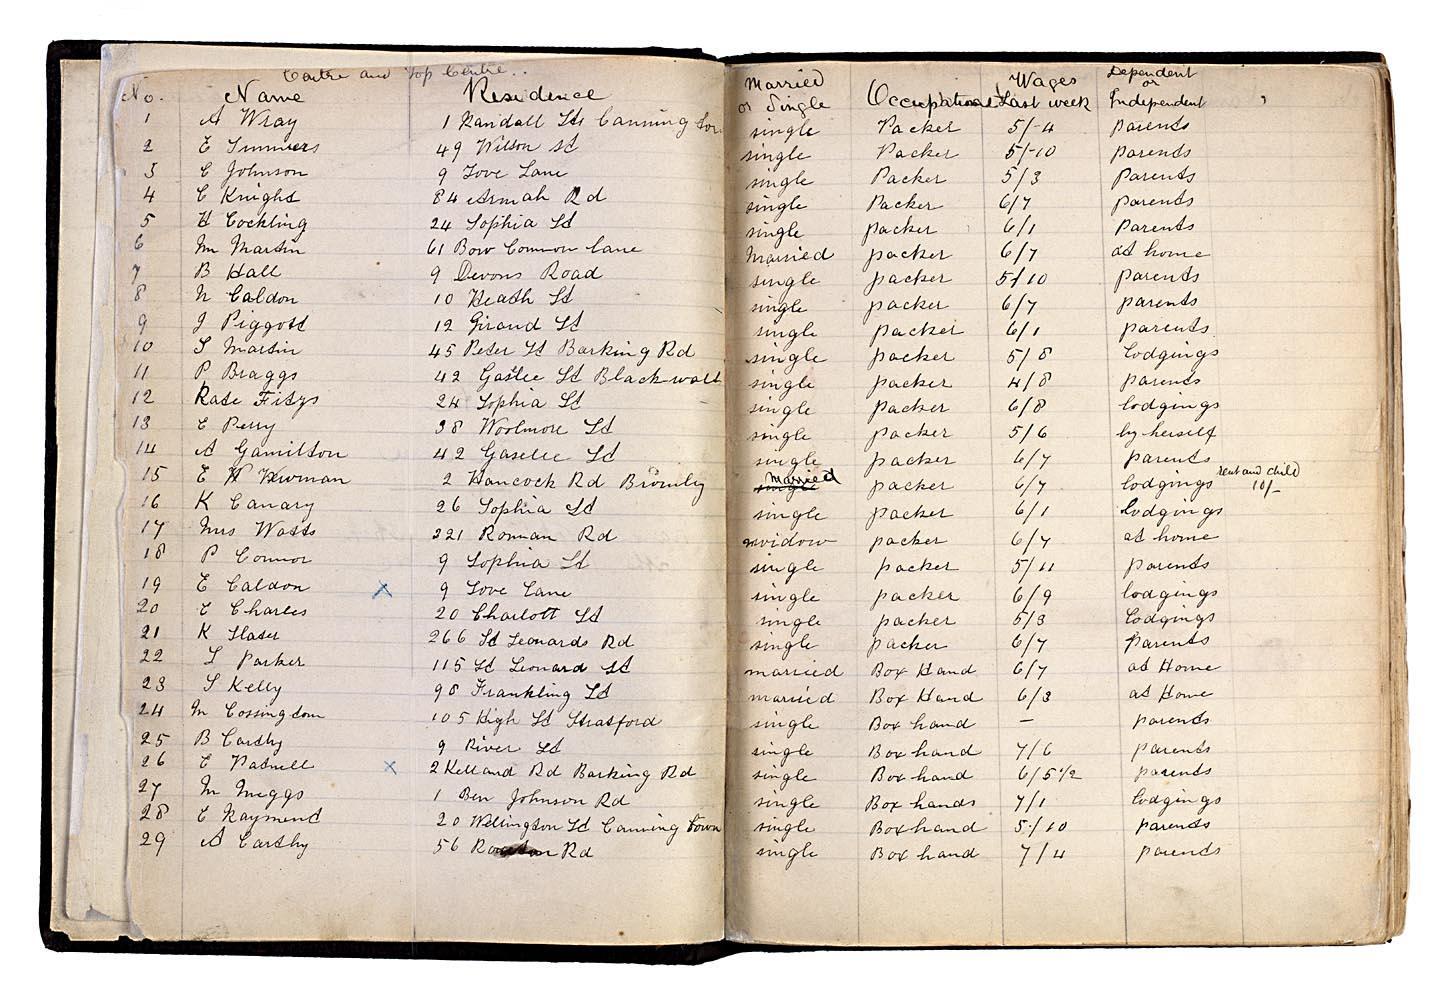 Centre and Top Centre..
No. Name Residence Married or Single Occupation Wages Last week Dependent or Independent
1 A Wray 1 Randall St Canning Town single Packer 5/-4 parents
2 E Summers 49 Wilson St single Packer 5/-10 parents
3 C Johnson 9 Love Lane single Packer 5/3 Parents
4 C Knight 84 Armah Rd single Packer 6/7 parents
5 H Cockling 24 Sophia St single packer 6/1 Parents
6 Mrs Martin 61 Bow Common lane Married packer 6/7 at home
7 B Hall 9 Devons Road single packer 5/10 parents
8 N Caldon 10 Heath St single packer 6/7 parents
9 J Piggott 12 Giraud St single packer 6/1 parents
10 S Martin 45 Peter St Barking Rd single packer 5/8 lodgings
11 P Braggs 42 Gaslee St Blackwall single packer 4/8 parents
12 Kate Fitzs 24 Sophia St single packer 6/8 lodgings
13 E Perry 38 Woolmore St single packer 5/6 by herself
14 A Gamilton 42 Gaselee St single packer 6/7 parents
15 E Newman 2 Hancock Rd Bromley single married packer 6/7 lodgings rent and child 10/-
16 K Canary 26 Sophia St single packer 6/1 Lodgings
17 Mrs Watts 221 Roman Rd widow packer 6/7 at home
18 P Connor 9 Sophia St single packer 5/11 parents
19 E Caldon x 9 Love Lane single packer 6/9 lodgings
20 E Charles 20 Charlott St single packer 5/3 Lodgings
21 K Slater 266 St Leonards Rd single packer 6/7 Parents
22 L Parker 115 St Leonard St married Box Hand 6/7 at Home
23 S Kelly 98 Frankling St married Box Hand 6/3 at Home
24 M Cossington 105 High St Stratford single Box hand – parents
25 B Carthy 9 River St single Box hand 7/6 parents
26 E Patnell x 2 Kelland Rd Barking Rd single Box hand 6/5 1/2 parents
27 M Meggs 1 Ben Johnson Rd single Box hands 7/1 lodgings
28 E Raymend 20 Wellington St Canning Town single Box hand 5/10 parents
29 A Carthy 56 Rd single Box hand 7/4 parents